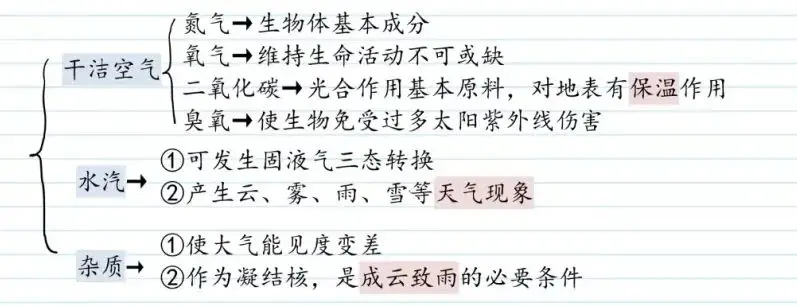 氮气→生物体基本成分
氧气→维持生命活动不可或缺
干洁空气
二氧化碳→光合作用基本原料，对地表有保温作用
臭氧→使生物免受过多太阳紫外线伤害
①可发生固液气三态转换
水汽→
②产生云、雾、雨、雪等天气现象
①使大气能见度变差
杂质→
②作为凝结核，是成云致雨的必要条件